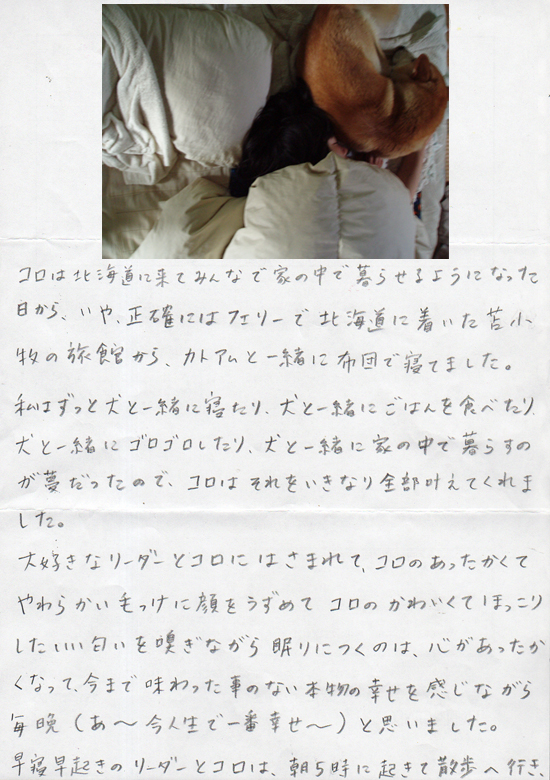 コロは北海道に来てみんなで家の中で暮らせるようになった
日から、いや、正確にはフェリーで北海道に着いた苫小
牧の旅館から、カトアムと一緒に布団で寝てました。
私はずっと犬と一緒に寝たり、犬と一緒にごはんを食べたり、
犬と一緒にゴロゴロしたり、犬と一緒に家の中で暮らすの
が夢だったので、コロはそれをいきなり全部叶えてくれま
した。
大好きなリーダーとコロにはさまれて、コロのあったかくて
やわらかい毛っけに顔をうずめてコロのかわいくてほっこり
したいい匂いを嗅ぎながら眠りにつくのは、心があったか
くなって、今まで味わった事のない本物の幸せを感じながら
毎晩(あ〜今人生で一番幸せ〜)と思いました。
早寝早起きのリーダーとコロは、朝5時に起きて散歩へ行き、